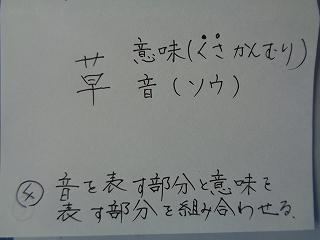 草 意味(くさかんむり)
音(ソウ)
④音を表す部分と意味を
表す部分を組み合わせる.